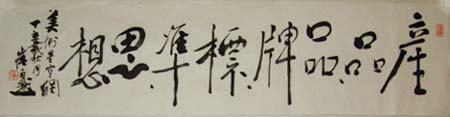 產品品牌標準思想
美術星空網
丁亥歲秋月